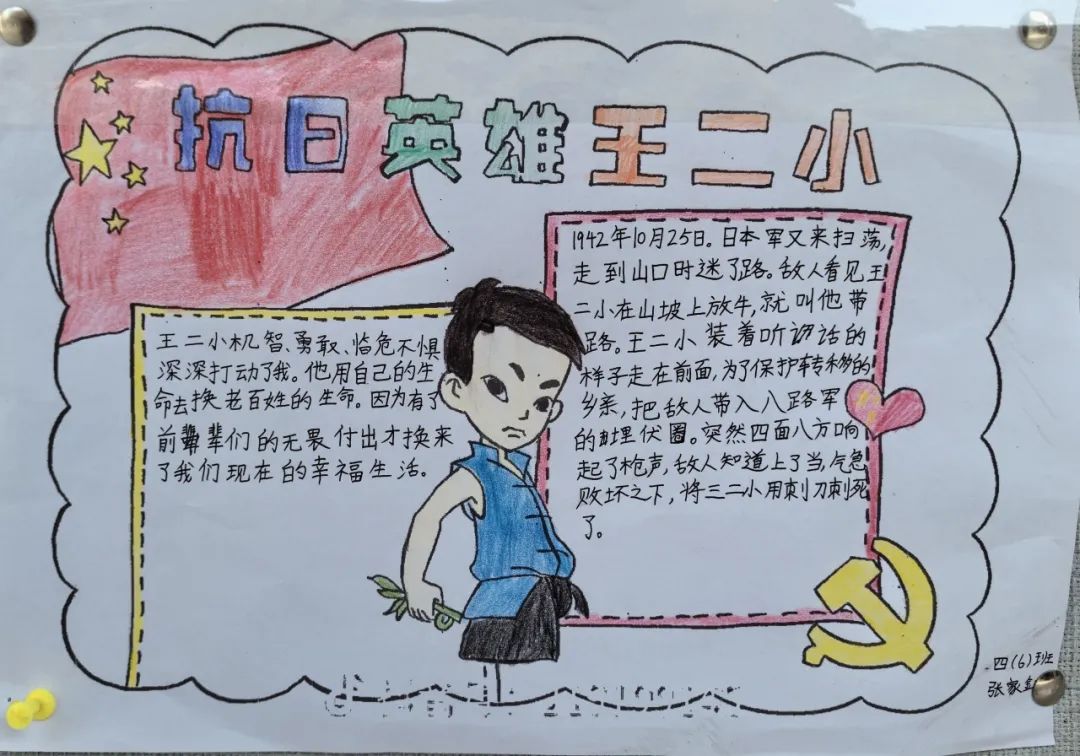 抗日英雄王二小
王二小机智、勇敢、临危不惧
深深打动了我。他用自己的生
命去换老百姓的生命。因为有了
前辈们的无畏付出才换来
了我们现在的幸福生活。
1942年10月25日。日本军又来扫荡,
走到山口时迷了路。敌人看见王
二小在山坡上放牛,就叫他带
路。王二小装着听话的
样子走在前面,为了保护转移的
乡亲,把敌人带入八路军
的埋伏圈。突然四面八方响
起了枪声,敌人知道上了当,气急
败坏之下,将三二小用刺刀刺死
了。
四(6)班
张家